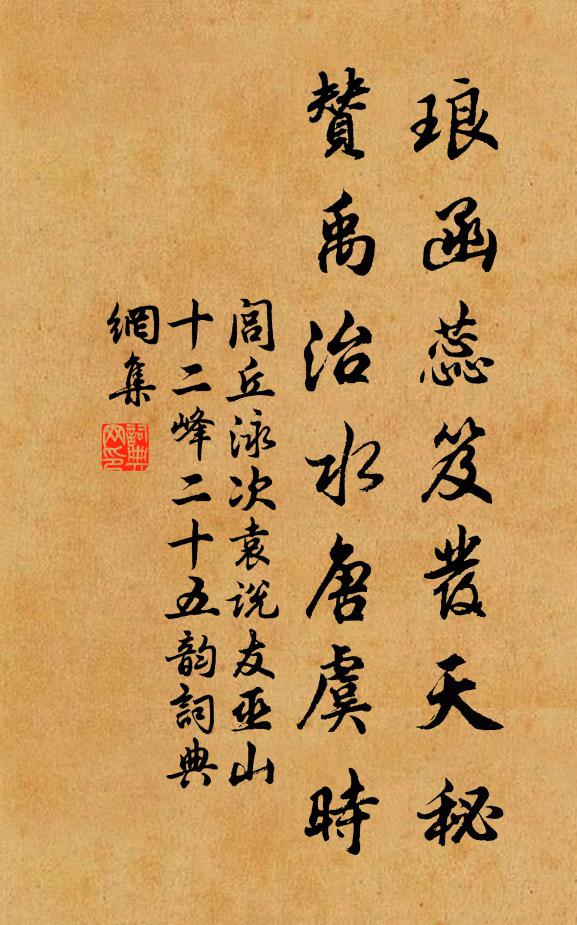 琅函蕊笈發天秘
贊禹治水唐虞時
閭丘泳次袁说友巫山
十二峰二十五韵詞典
網集
詞典
网印